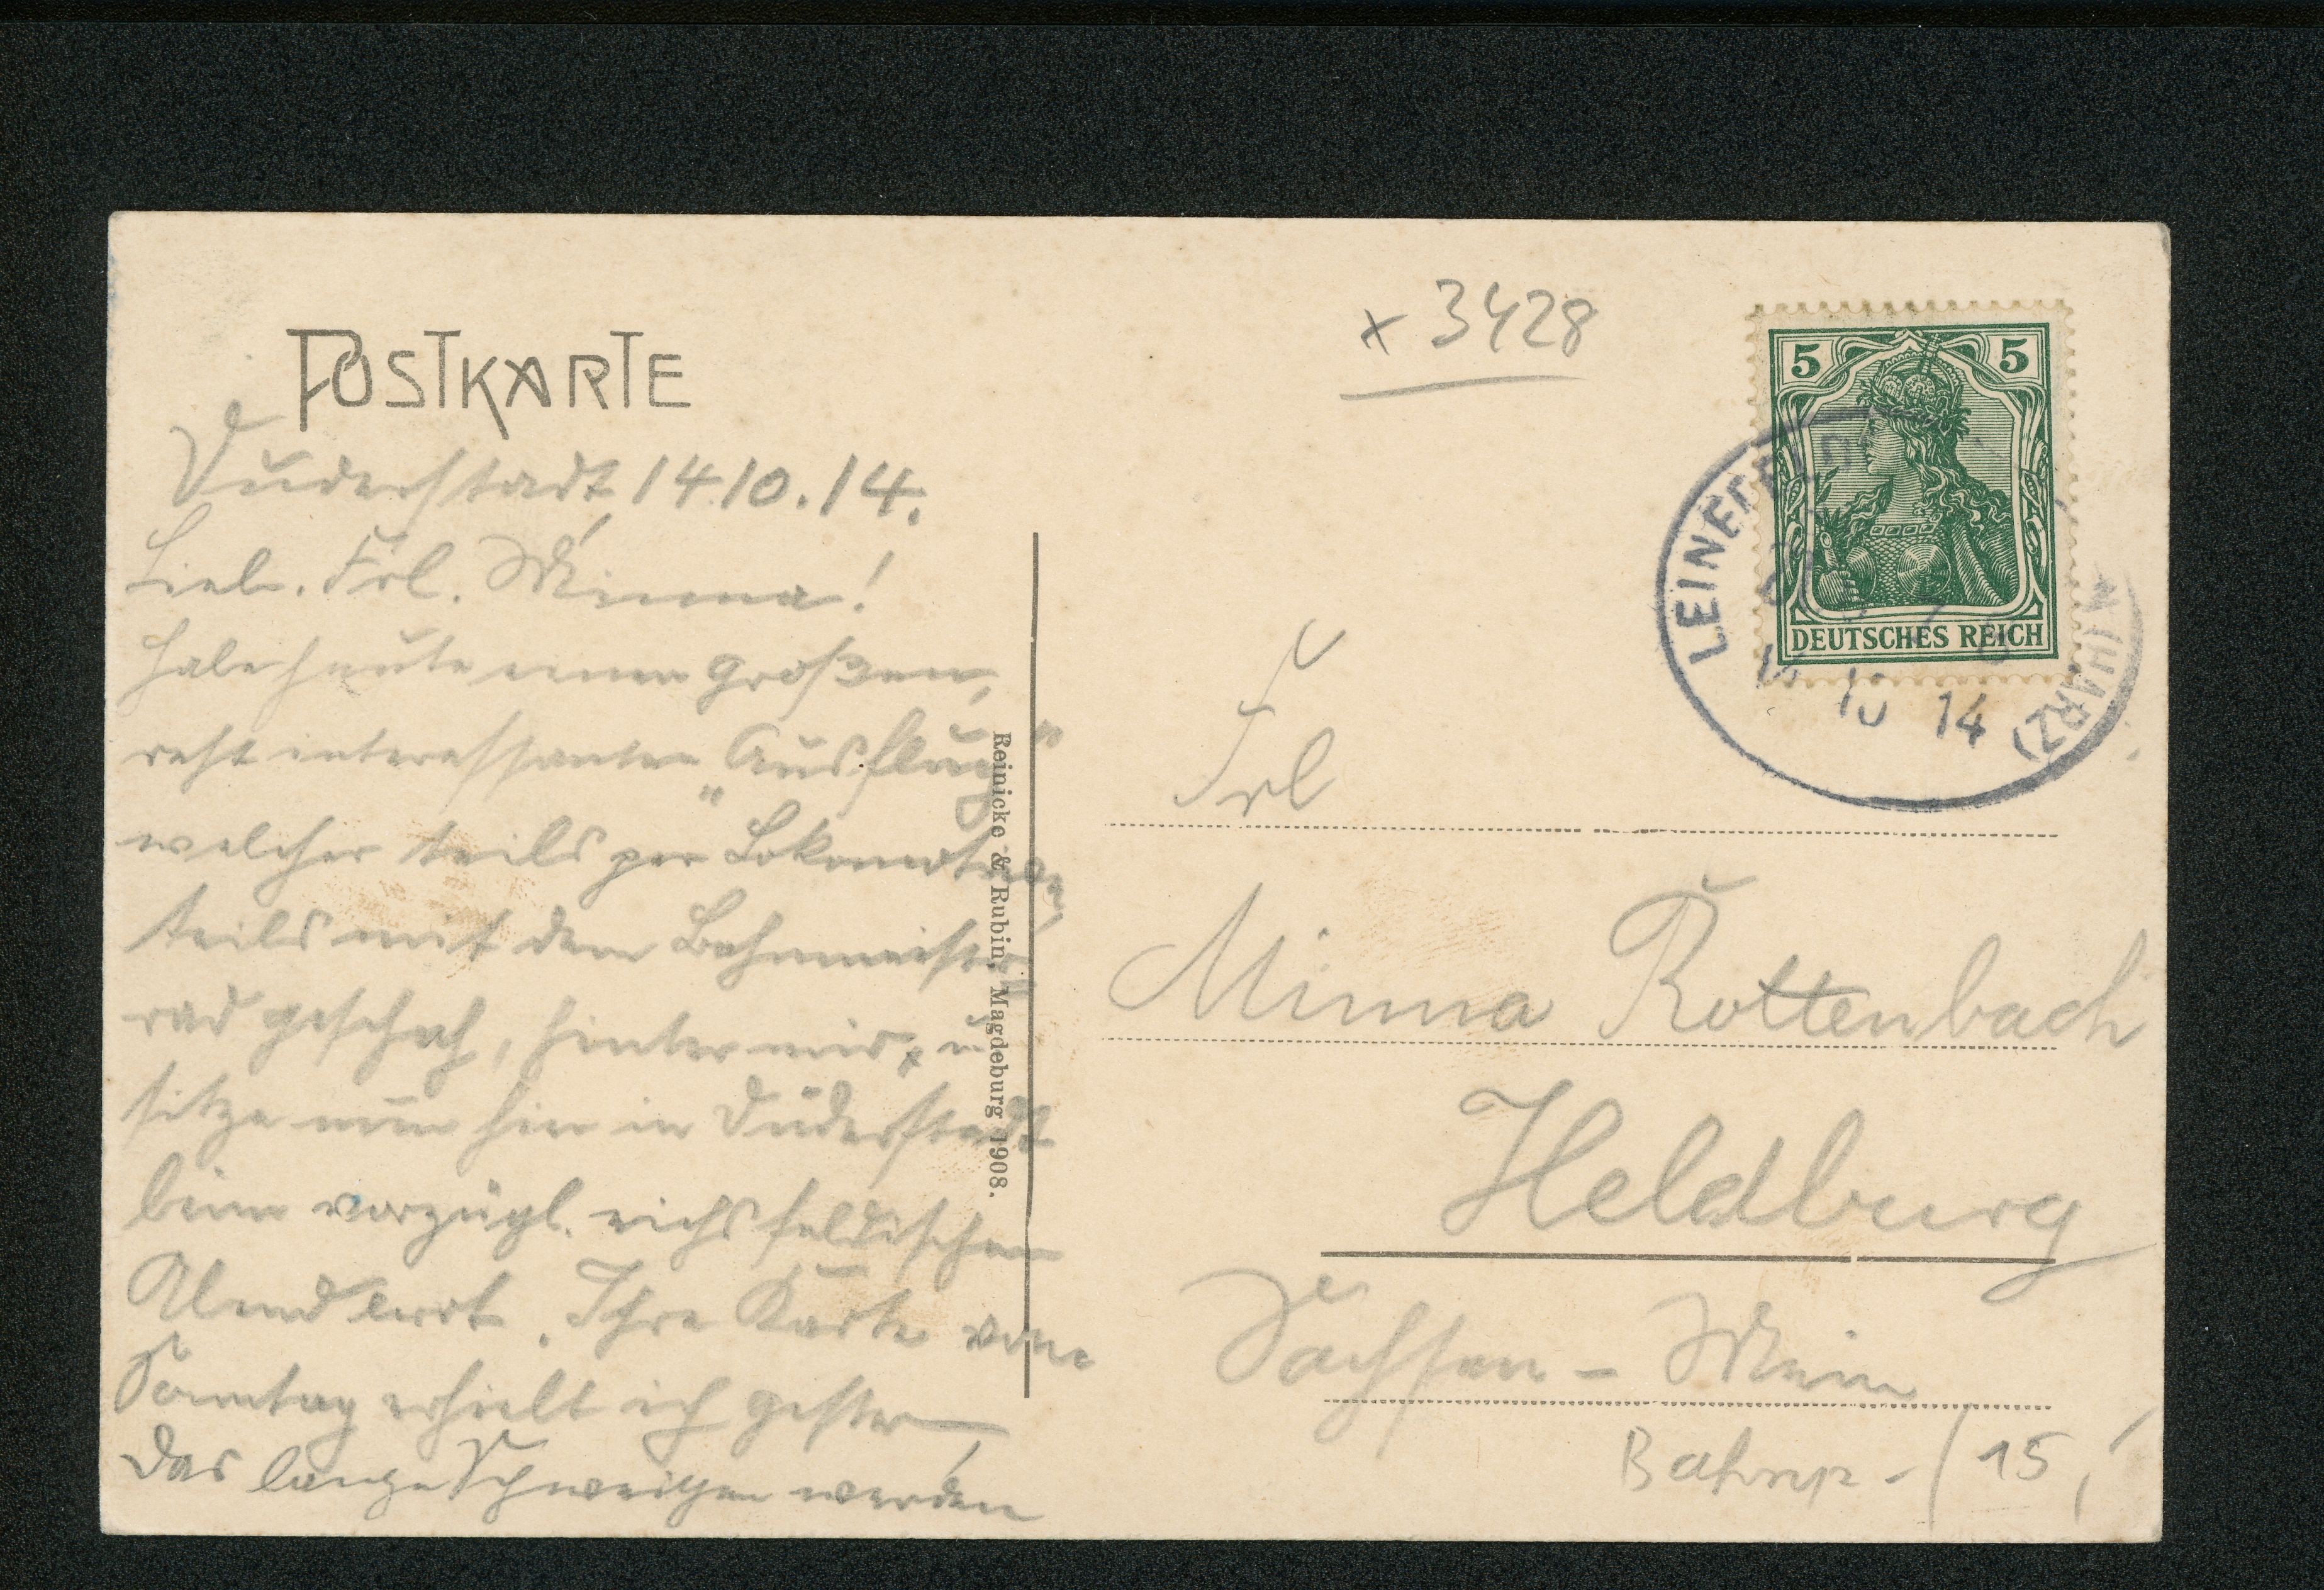 POSTKARTE
Duderstadt, 14.10.14.
Lieb. Frl. Minna!
Habe heute einen großen,
recht interessanten „Ausflug"
welcher teils per Lokomotive,
teils mit dem Bahnmeister
rad geschah, hinter mir, u.
sitze nun hier in Duderstadt
beim vorzügl. eichsfeldischen
Abendbrot. Ihre Karte vom
Sonntag erhielt ich gestern,
das lange Schweigen werden
Reinicke & Rubin, Magdeburg 1908.
x 3428
5 5
DEUTSCHES REICH
LEINEFELDE (HARZ)
10 14
Frl
Minna Rottenbach
Heldburg
Sachsen - Mein
Bahnp - / 15,